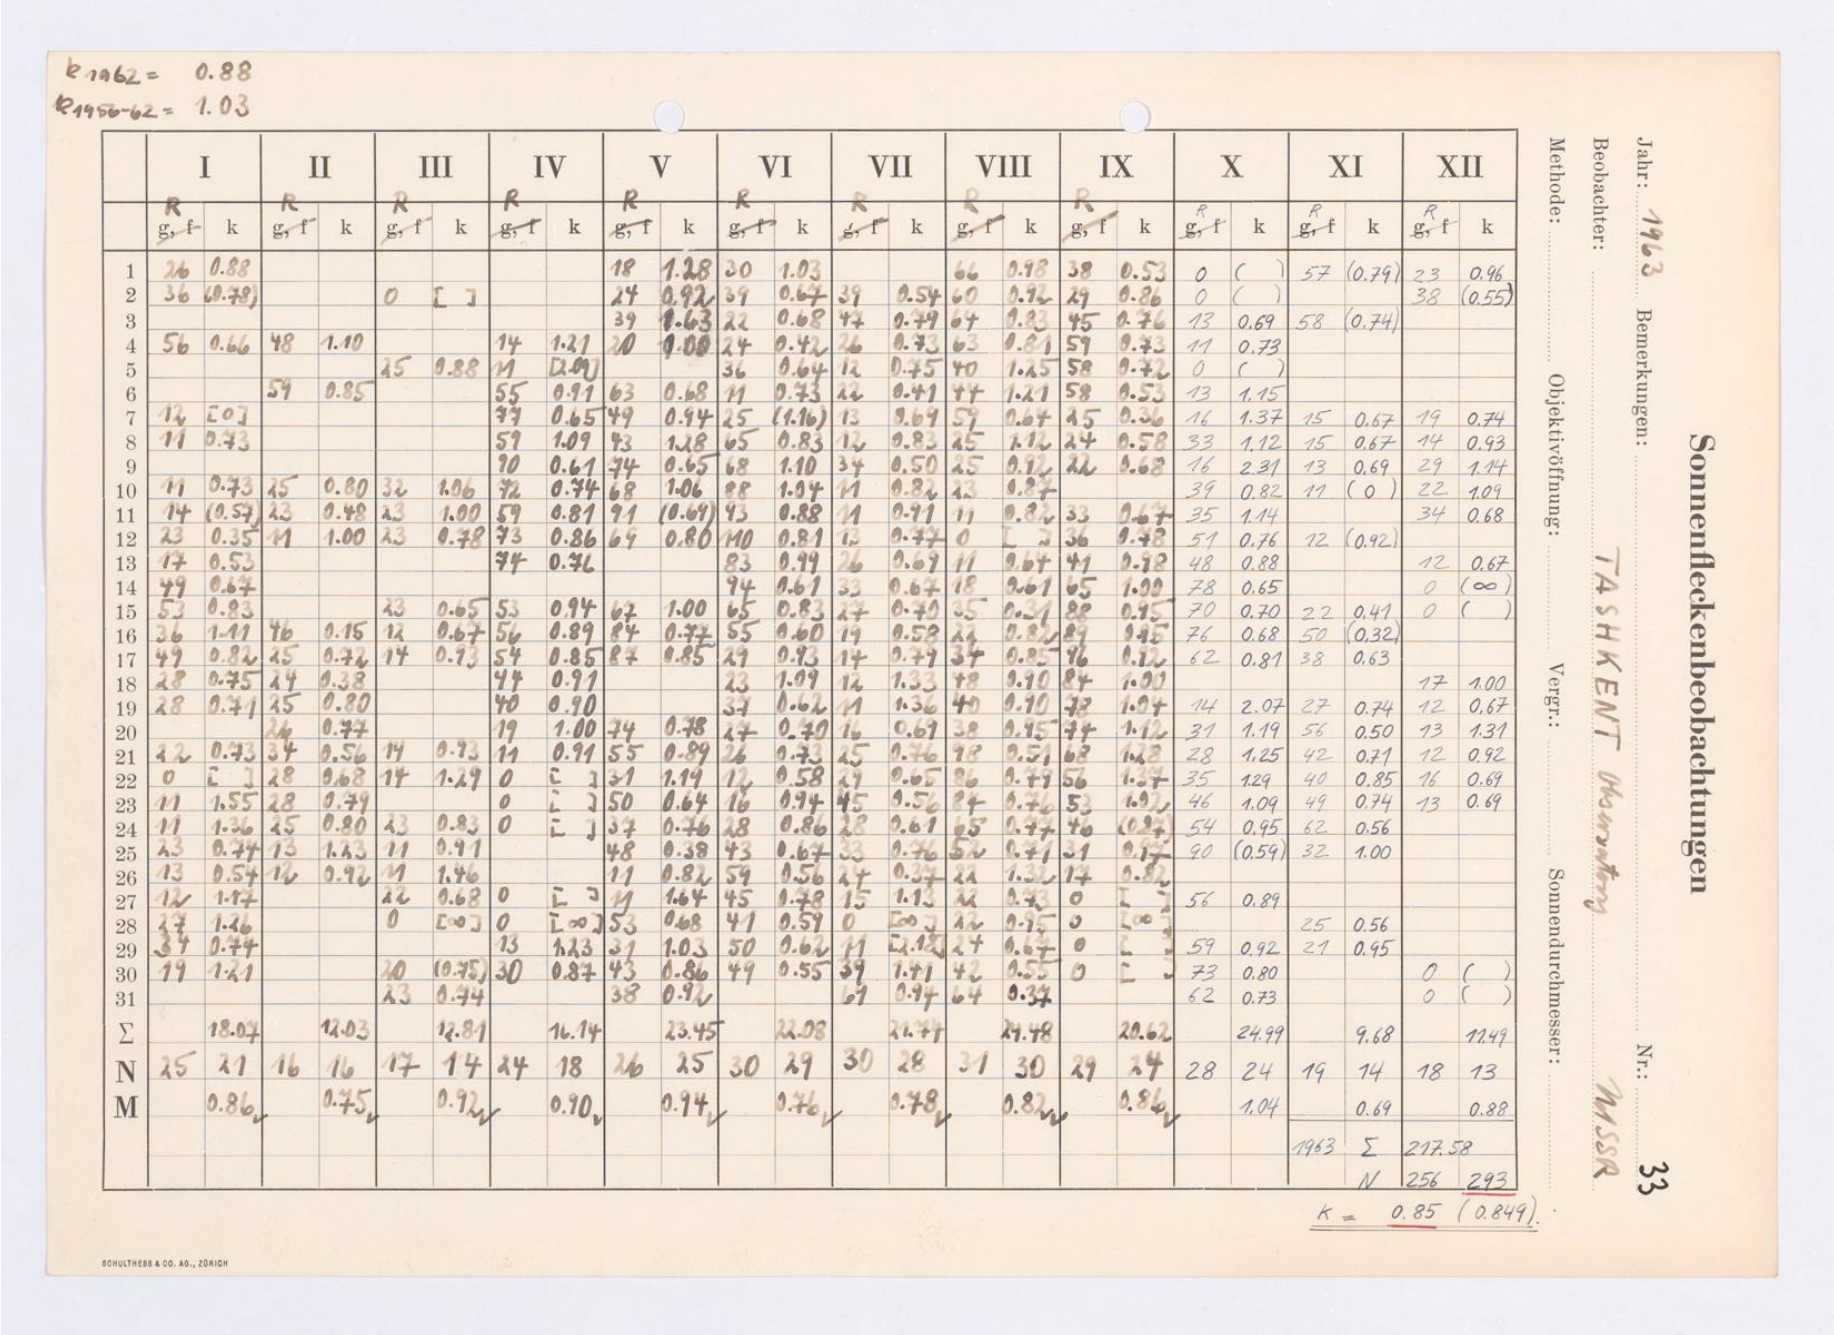 k1962 = 0.88
k1956-62 = 1.03
Sonnenfleckenbeobachtungen
Jahr: 1963 Bemerkungen: Nr.: 33
Beobachter: TASHKENT Observatory
Methode: Objektivöffnung: Vergr.: Sonnendurchmesser:
I II III IV V VI VII VIII IX X XI XII
R R R R R R R R R R R R
g, f k g, f k g, f k g, f k g, f k g, f k g, f k g, f k g, f k g, f k g, f k g, f k
1 26 0.88 18 1.28 30 1.03 66 0.98 38 0.53 0 ( ) 57 (0.79) 23 0.96
2 36 (0.78) 0 [ ] 24 0.92 39 0.67 39 0.54 60 0.92 29 0.86 0 ( ) 38 (0.55)
3 39 1.63 22 0.68 47 0.79 64 0.83 45 0.76 13 0.69 58 (0.74)
4 56 0.66 48 1.10 14 1.21 20 0.00 24 0.42 26 0.73 63 0.81 59 0.73 11 0.73
5 25 0.88 11 [2.09] 36 0.64 12 0.75 40 1.25 58 0.72 0 ( )
6 59 0.85 55 0.91 63 0.68 11 0.73 22 0.41 44 1.21 58 0.53 13 1.15
7 12 [0] 77 0.65 49 0.94 25 (1.16) 13 0.69 59 0.64 25 0.36 16 1.37 15 0.67 19 0.74
8 11 0.73 59 1.09 43 1.28 65 0.83 12 0.83 25 1.12 24 0.58 33 1.12 15 0.67 14 0.93
9 90 0.61 74 0.65 68 1.10 34 0.50 25 0.92 22 0.68 16 2.31 13 0.69 29 1.14
10 11 0.73 25 0.80 32 1.06 72 0.74 68 1.06 88 1.04 11 0.82 23 0.87 39 0.82 11 (0) 22 1.09
11 14 (0.57) 23 0.48 23 1.00 59 0.81 91 (0.69) 93 0.88 11 0.91 11 0.82 33 0.67 35 1.14 34 0.68
12 23 0.35 11 1.00 23 0.78 73 0.86 69 0.80 110 0.81 13 0.77 0 [ ] 36 0.78 51 0.76 12 (0.92)
13 17 0.53 74 0.76 83 0.99 26 0.69 11 0.64 41 0.98 48 0.88 12 0.67
14 49 0.67 94 0.61 33 0.67 18 0.61 65 1.00 78 0.65 0 (∞)
15 53 0.83 23 0.65 53 0.94 67 1.00 65 0.83 27 0.70 35 0.31 88 0.95 70 0.70 22 0.41 0 ( )
16 36 1.11 46 0.15 12 0.67 56 0.89 84 0.77 55 0.60 19 0.58 22 0.82 89 0.95 76 0.68 50 (0.32)
17 49 0.82 25 0.72 14 0.93 54 0.85 87 0.85 29 0.93 14 0.79 34 0.85 96 0.92 62 0.81 38 0.63
18 28 0.75 24 0.38 44 0.91 23 1.09 12 1.33 48 0.90 84 1.00 17 1.00
19 28 0.71 25 0.80 40 0.90 37 0.62 11 1.36 40 0.90 78 1.04 14 2.07 27 0.74 12 0.67
20 26 0.77 19 1.00 74 0.78 27 0.70 16 0.69 38 0.95 74 1.12 31 1.19 56 0.50 13 1.31
21 22 0.73 34 0.56 14 0.93 11 0.91 55 0.89 26 0.73 25 0.76 98 0.51 68 1.28 28 1.25 42 0.71 12 0.92
22 0 [ ] 28 0.68 14 1.29 0 [ ] 31 1.19 12 0.58 29 0.65 86 0.79 56 1.37 35 1.29 40 0.85 16 0.69
23 11 1.55 28 0.79 0 [ ] 50 0.64 16 0.94 45 0.56 84 0.76 53 1.02 46 1.09 49 0.74 13 0.69
24 11 1.36 25 0.80 23 0.83 0 [ ] 37 0.76 28 0.86 28 0.61 65 0.77 46 (0.87) 54 0.95 62 0.56
25 23 0.74 13 1.23 11 0.91 48 0.38 43 0.67 33 0.76 52 0.71 31 0.97 90 (0.59) 32 1.00
26 13 0.54 12 0.92 11 1.46 11 0.82 59 0.56 24 0.37 22 1.32 17 0.82
27 12 1.17 22 0.68 0 [ ] 11 1.64 45 0.78 15 1.13 22 0.73 0 [ ] 56 0.89
28 27 1.26 0 [∞] 0 [∞] 53 0.68 41 0.59 0 [∞] 22 0.95 0 [∞] 25 0.56
29 34 0.74 13 1.23 31 1.03 50 0.62 11 [2.18] 24 0.67 0 [ ] 59 0.92 21 0.95
30 19 1.21 20 (0.75) 30 0.87 43 0.86 49 0.55 39 1.41 42 0.55 0 [ ] 73 0.80 0 ( )
31 23 0.74 38 0.92 61 0.94 64 0.37 62 0.73 0 ( )
Σ 18.07 12.03 12.81 16.14 23.45 22.08 21.74 24.48 20.62 24.99 9.68 11.49
N 25 21 16 16 17 14 24 18 26 25 30 29 30 28 31 30 29 24 28 24 19 14 18 13
M 0.86 0.75 0.92 0.90 0.94 0.76 0.78 0.82 0.86 1.04 0.69 0.88
1963 Σ 217.58
N 256 293
K = 0.85 (0.849).
SCHULTHESS & CO. AG., ZÜRICH